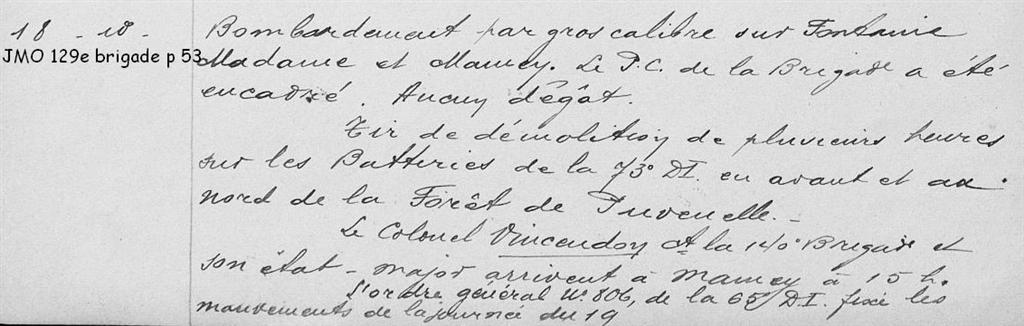 18 - id - Bombardement par gros calibre sur Fontaine
JMO 129e brigade p 53
Madame et Mamey. Le P.C. de la Brigade a été
encadré. Aucun dégât.
Tir de démolition de plusieurs heures
sur les Batteries de la 73e DI. en avant et au
nord de la Forêt de Puvenelle. -
Le Colonel Vincendon Ct la 140e Brigade et
son état-major arrivent à Mamey à 15 h.
L'ordre général No 806, de la 65e D.I. fixe les
mouvements de la journée du 19